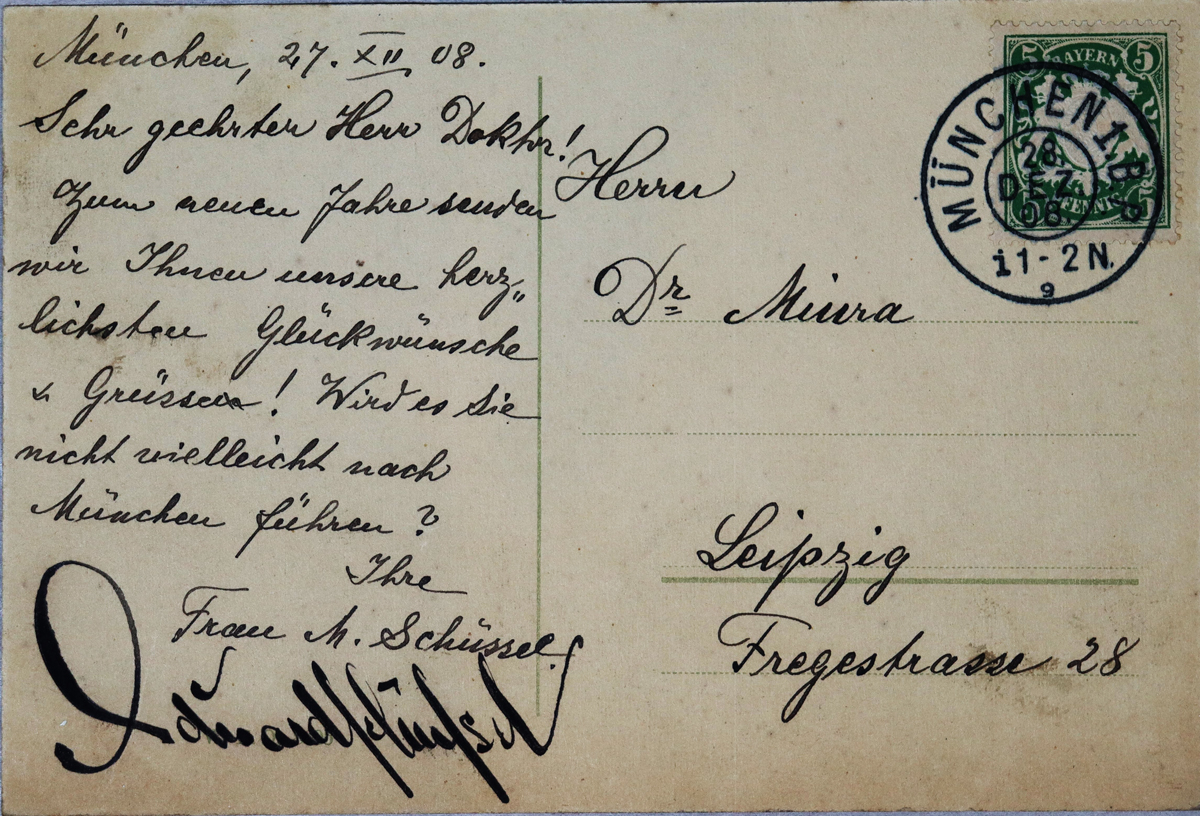 München, 27. XII 08.
Sehr geehrter Herr Doktor!
Zum neuen Jahre senden
wir Ihnen unsere herz„
lichsten Glückwünsche
& Grüsse! Wird es Sie
nicht vielleicht nach
München führen?
Ihre
Frau M. Schüssel.
Eduard Schüssel
Herrn
Dr Miura
Leipzig
Fregestrasse 28
5 BAYERN 5
PFENNIG
MÜNCHEN 1. B.P.
28.
DEZ
08.
11-2 N.
9